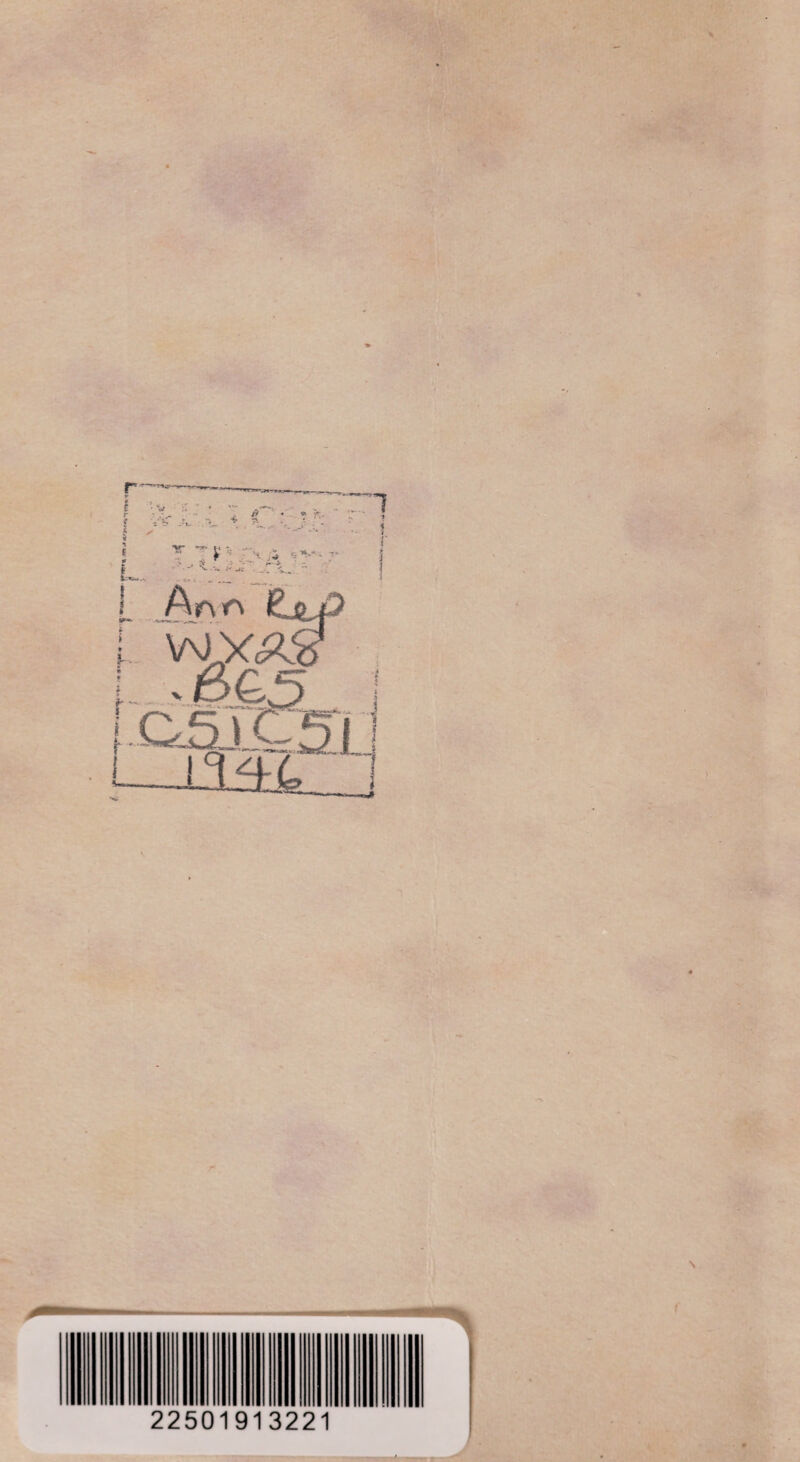 WELLCOME
LIBRARY
Ann Rep
WX28
.BE5
C51C51
1946
22501913221